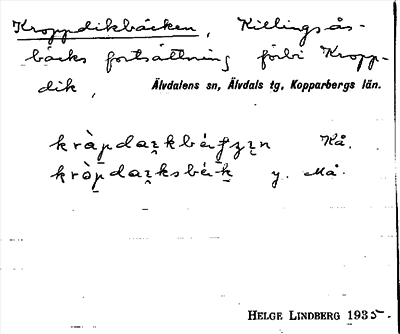 Kroppdikbäcken, Killingsås-
bäcks fortsättning förbi Kropp-
dik, Älvdalens sn, Älvdals tg, Kopparbergs län.
Kå.
y. Må.
HELGE LINDBERG 1935.